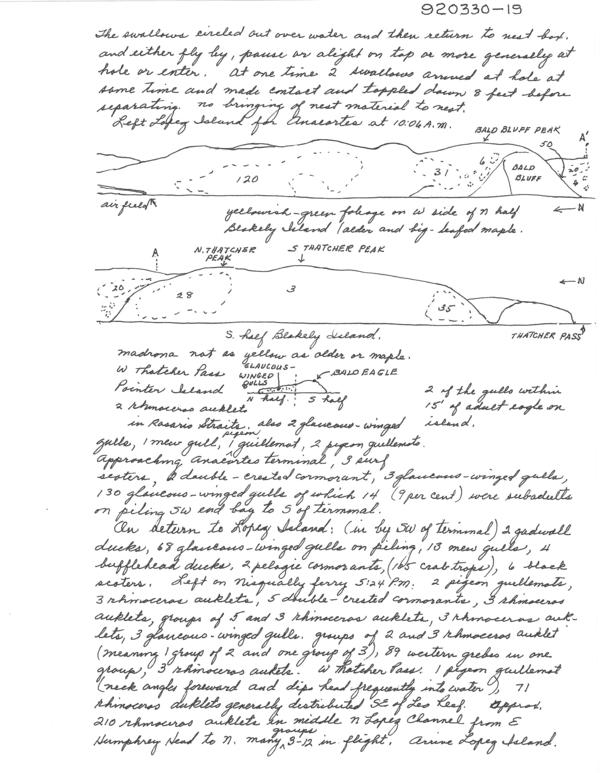 920330-19
The swallows circled out over water and then return to nest box.
and either fly by, pause or alight on top or more generally at
hole or enter. At one time 2 swallows arrived at hole at
same time and made contact and toppled down 8 feet before
separating. no bringing of nest material to nest.
Left Lopez Island for Anacortes at 10:06 A.M.
BALD BLUFF PEAK
50
A'
120
31
6
BALD
BLUFF
20
4
airfield
← N
yellowish-green foliage on W side of N half
Blakely Island / alder and big-leafed maple.
A
N. THATCHER
PEAK
S THATCHER PEAK
← N
20
28
3
35
THATCHER PASS
S. half Blakely Island.
madrona not as yellow as alder or maple.
W Thatcher Pass
GLAUCOUS-
WINGED
GULLS
BALD EAGLE
Pointer Island
N half. S half
2 of the gulls within
15' of adult eagle on
island.
2 rhinoceros auklets
in Rosario Straits. also 2 glaucous-winged
gulls, 1 mew gull, 1 pigeon guillemot, 2 pigeon guillemots.
Approaching Anacortes terminal, 3 surf
scoters, double-crested cormorant, 3 glaucous-winged gulls,
130 glaucous-winged gulls of which 14 (9 per cent) were subadults
on piling SW end bay to S of terminal.
On return to Lopez Island: (in by SW of terminal) 2 gadwall
ducks, 68 glaucous-winged gulls on piling, 13 mew gulls, 4
bufflehead ducks, 2 pelagic cormorants, (165 crab traps), 6 black
scoters. Left on Nisqually ferry 5:24 P.M. 2 pigeon guillemots,
3 rhinoceros auklets, 5 double-crested cormorants, 3 rhinoceros
auklets, groups of 5 and 3 rhinoceros auklets, 3 rhinoceros auk-
lets, 3 glaucous-winged gulls. groups of 2 and 3 rhinoceros auklet
(meaning 1 group of 2 and one group of 3), 89 western grebes in one
group, 3 rhinoceros auklets. W Thatcher Pass. 1 pigeon guillemot
(neck angles foreward and dips head frequently into water), 71
rhinoceros auklets generally distributed SE of Leo Reef. Approx.
210 rhinoceros auklets in middle N Lopez Channel from E
Humphrey Head to N. many groups 3-12 in flight. Arrive Lopez Island.